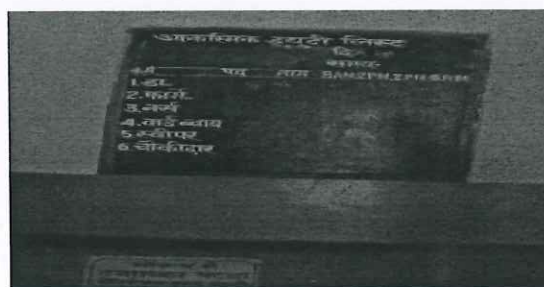 आकस्मिक ड्यूटी लिस्ट
दि.
समय-
पद नाम 8AM.2PM,2PM.8PM
1.डा.
2.फार्मा.
3.नर्स
4.वार्ड ब्वाय
5.स्वीपर
6.चौकीदार